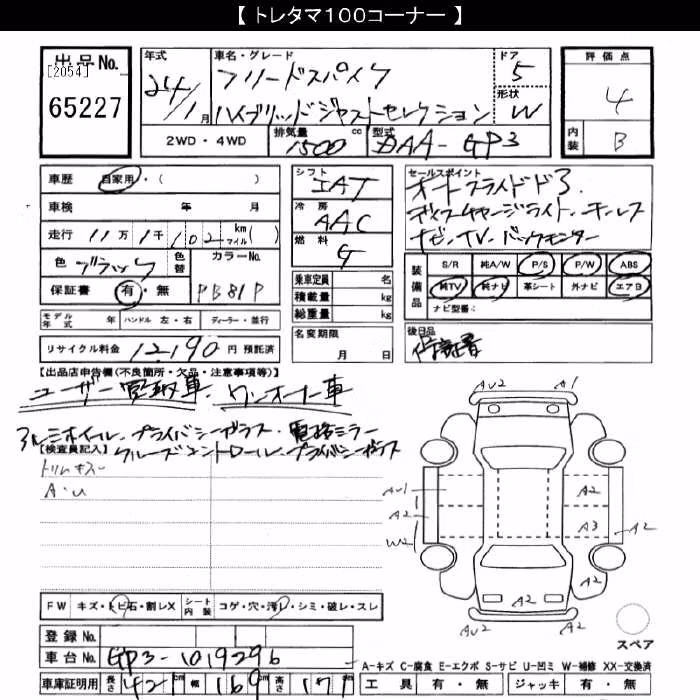 【 トレタマ100コーナー 】
出品No.
[2054]
65227
年式
24/1月
車名・グレード
フリードスパイク
ハイブリッドジャストセレクション
ドア
5
形状
W
評価点
4
内装
B
2WD・4WD
排気量 1500 cc
型式 DAA-GP3
車歴 自家用・( )
車検 年 月
走行 11万1千102 km マイル( )
色 ブラック
色替
カラーNo. PB81P
保証書 有・無
モデル年式 年
ハンドル 左・右
ディーラー・並行
リサイクル料金 12,190 円 預託済
シフト IAT
冷房 AAC
燃料 G
乗車定員 名
積載量 kg
総重量 kg
名変期限
月 日
セールスポイント
オートスライドドア.
ディスチャージライト・キーレス
ナビ・TV・バックモニター
装備品
S/R 純A/W P/S P/W ABS
純TV 純ナビ 革シート 外ナビ エアB
ナビ型番:
後日品
保証書
【出品店申告欄(不良箇所・欠品・注意事項等)】
ユーザー買取車、ワンオーナー車
アルミホイール・プライバシーガラス・電格ミラー
【検査員記入】
クルーズコントロール・プライバシーガラス
トリムキズ
A・U
AU2 A1
AU1
A2
W2
A2
A3
A2
A2
A2
A2
スペア
FW キズ・トビ石・割レX
シート内装 コゲ・穴・汚レ・シミ・破レ・スレ
登録No.
車台No. GP3-1019296
車庫証明用 長さ 421 cm 幅 169 cm 高さ 171 cm
A-キズ C-腐食 E-エクボ S-サビ U-凹ミ W-補修 XX-交換済
工具 有・無 ジャッキ 有・無